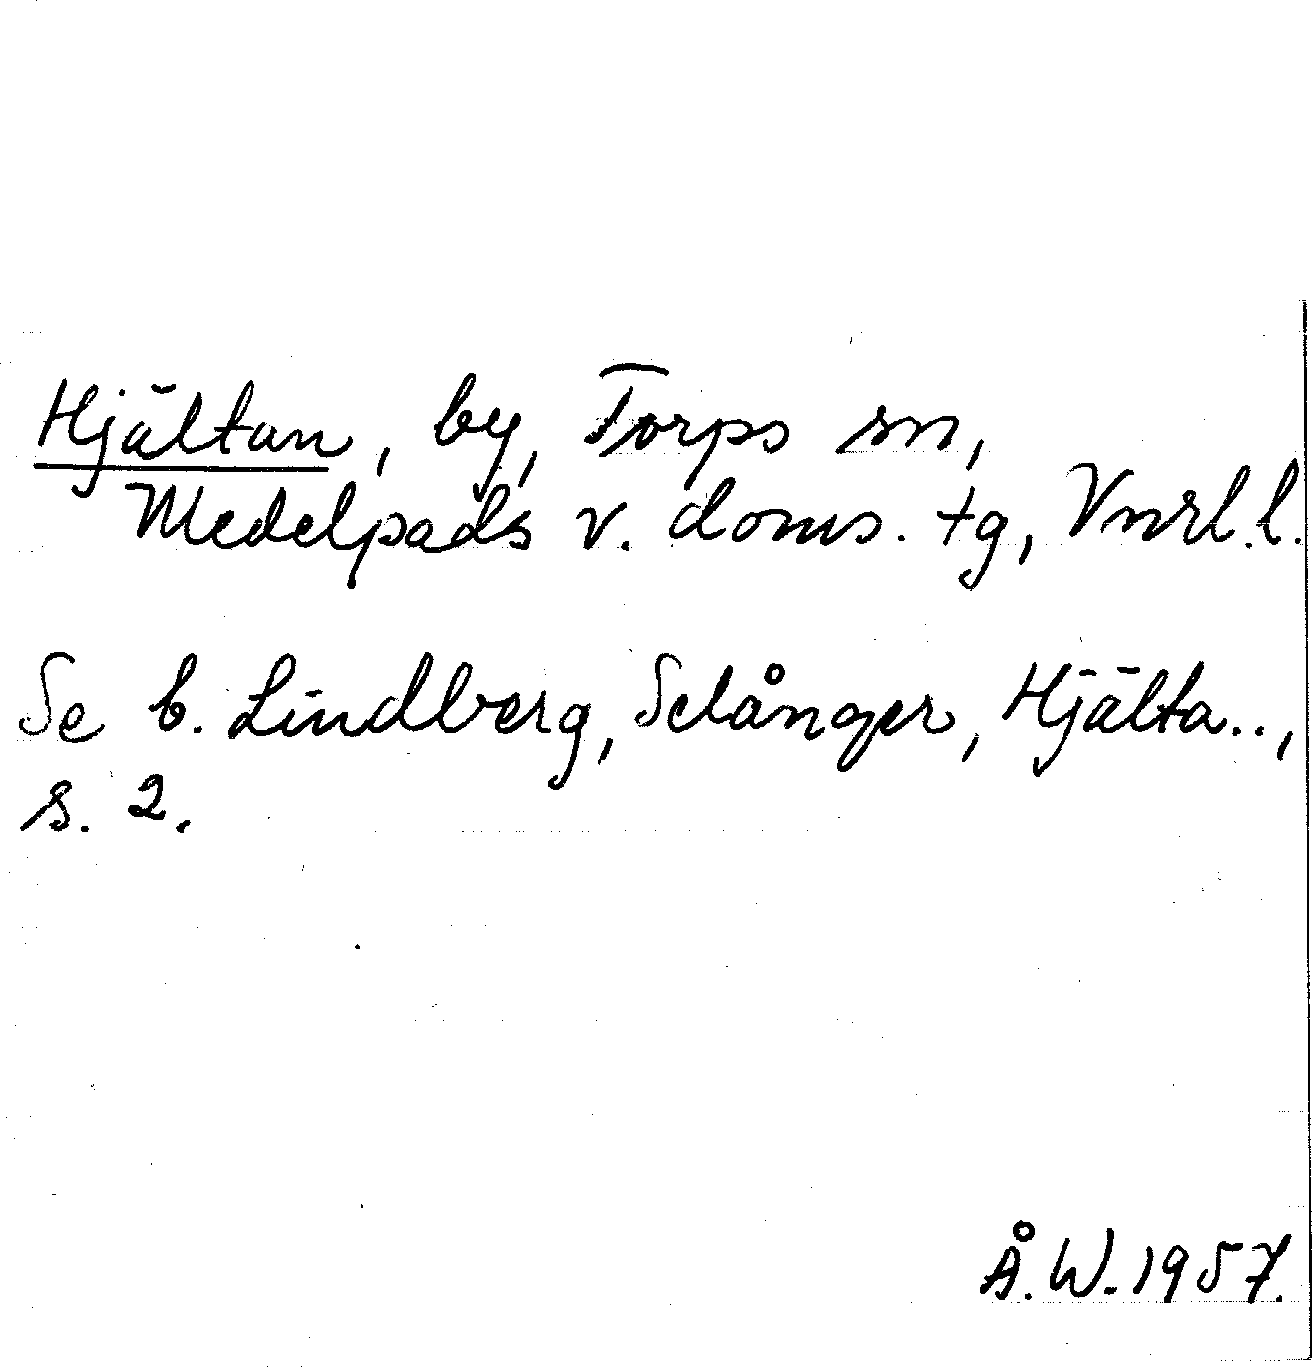 Hjältan, by, Torps sn,
Medelpads v. doms. tg, Vnrl.l.
Se b. Lindberg, Selånger, Hjälta..,
s. 2.
Å.W.1957.